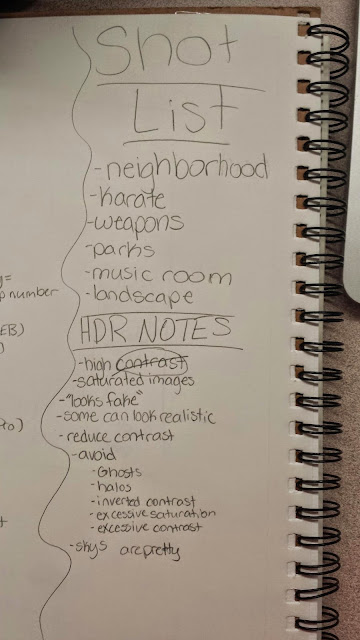 Shot
List
-neighborhood
-karate
-weapons
-parks
-music room
-landscape
HDR NOTES
-high contrast
-saturated images
-"looks fake"
-some can look realistic
-reduce contrast
-avoid
-Ghosts
-halos
-inverted contrast
-excessive saturation
-excessive contrast
-skys are pretty
=
number
EB)
)